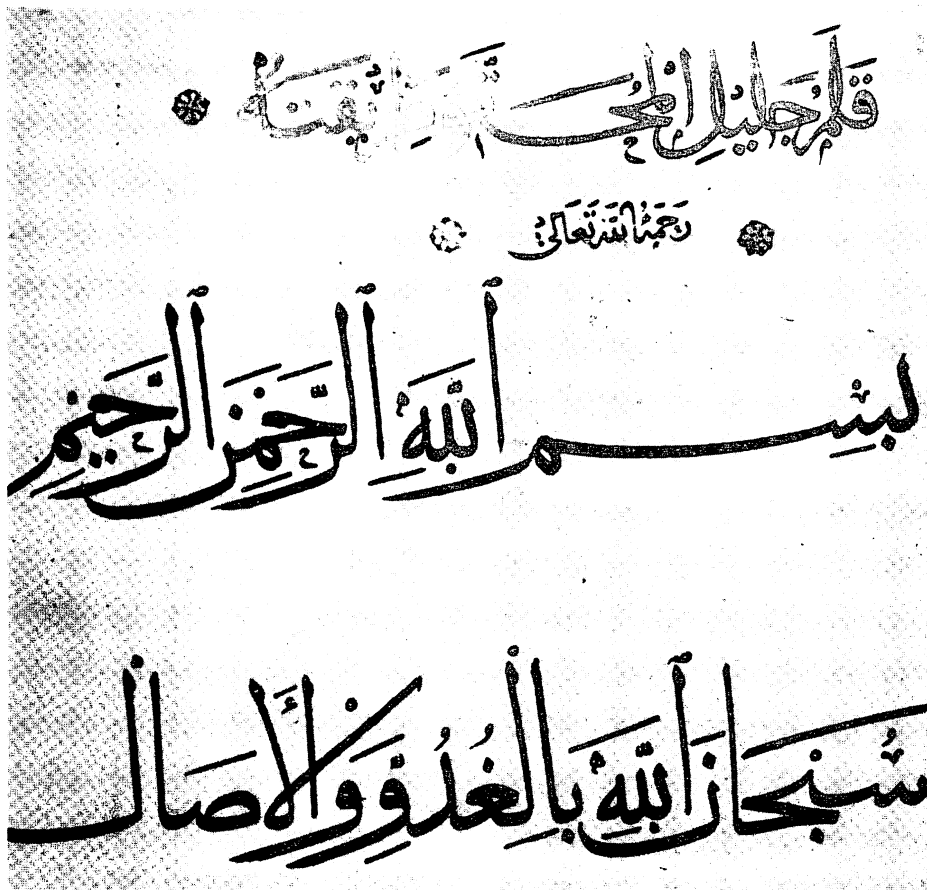 قَلَمُ جَلِيلِ
رَحِمَهُ اللهُ تَعَالَى
بِسْمِ ٱللَّهِ ٱلرَّحْمَٰنِ ٱلرَّحِيمِ
سُبْحَانَ ٱللَّهِ بِالْغُدُوِّ وَالْأَصَالْ